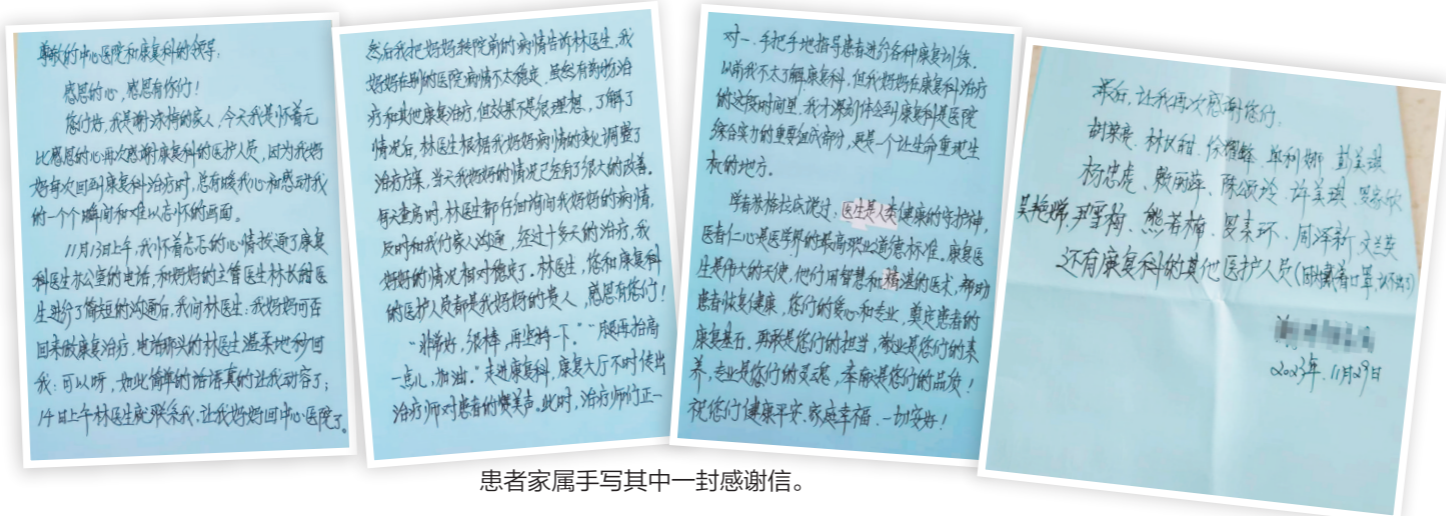 尊敬的中心医院和康复科的领导:
感恩的心,感恩有你们!
您们好,我是谢泳梅的家人,今天我是怀着无
比感恩的心再次感谢康复科的医护人员,因为我妈
妈每次回到康复科治疗时,总有暖我心和感动我
的一个个瞬间和难以忘怀的画面。
11月13日上午,我怀着忐忑的心情拨通了康复
科医生办公室的电话,和妈妈的主管医生林长甜医
生进行了简短的沟通后,我问林医生:我妈妈可否
回来做康复治疗,电话那头的林医生温柔地秒回
我:可以呀,如此简单的话语真的让我动容了;
14日上午林医生就联系我,让我妈妈回中心医院了。
然后我把妈妈转院前的病情告诉林医生,我
妈妈在别的医院病情不太稳定,虽然有药物治
疗和其他康复治疗,但效果不是很理想,了解了
情况后,林医生根据我妈妈病情的变化调整了
治疗方案,当天我妈妈的情况已经有了很大的改善。
每天查房时,林医生都仔细询问我妈妈的病情,
及时和我们家人沟通,经过十多天的治疗,我
妈妈的情况相对稳定了。林医生,您和康复科
的医护人员都是我妈妈的贵人,感恩有您们!
“非常好,很棒,再坚持一下。”“腿再抬高
一点儿,加油。”走进康复科,康复大厅不时传出
治疗师对患者的赞美声。此时,治疗师们正一
对一、手把手地指导患者进行各种康复训练。
以前我不太了解康复科,但我妈妈在康复科治疗
的这段时间里,我才深刻体会到康复科是医院
综合实力的重要组成部分,更是一个让生命重现生
机的地方。
学者苏格拉底说过,医生是人类健康的守护神,
医者仁心是医学界的最高职业道德标准。康复医
生是伟大的天使,他们用智慧和精湛的医术,帮助
患者恢复健康,您们的爱心和专业,奠定患者的
康复基石。再联是您们的担当,敬业是您们的素
养,专业是您们的灵魂,奉献是您们的品质!
祝您们健康平安、家庭幸福、一切安好!
最后,让我再次感谢您们,
胡荣亮、林长甜、徐耀峰、单利娜、彭美琪
杨忠虎、赖雨萍、陈颂玲、许美琪、
吴艳娣、尹雪梅、熊若楠、罗素环、周泽新、
还有康复科的其他医护人员(因为戴着口罩,认不出了)
2023年.11月29日
患者家属手写其中一封感谢信。